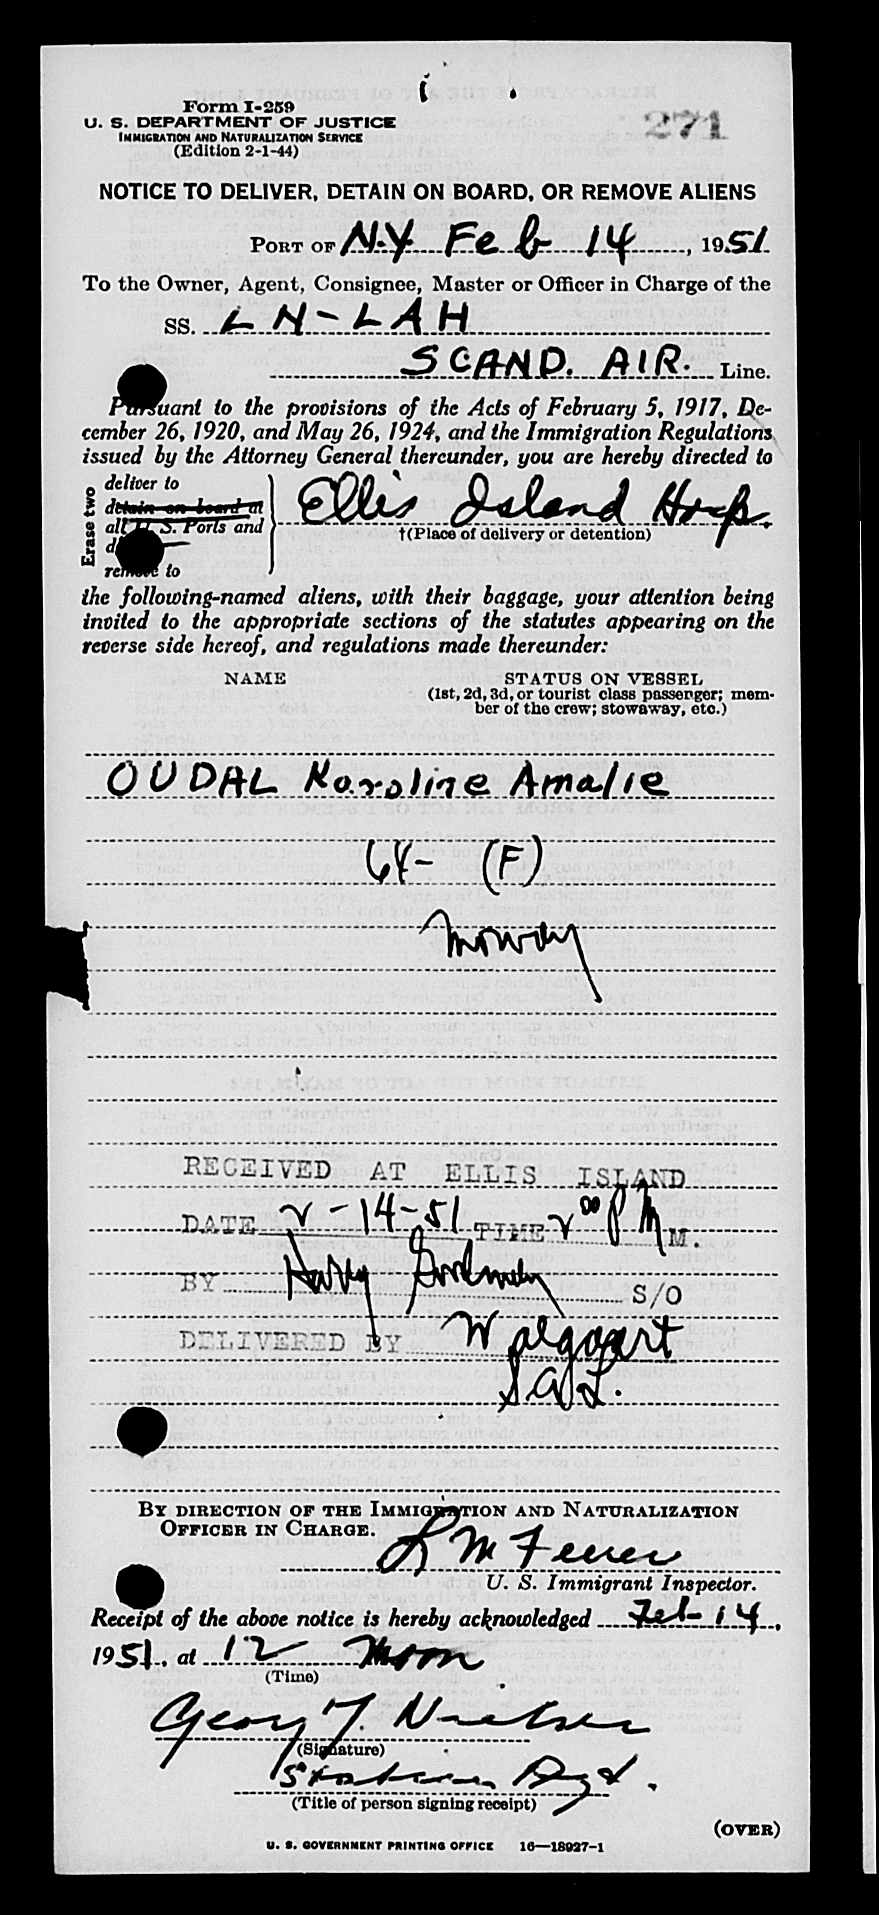 Form I-259
U. S. DEPARTMENT OF JUSTICE
IMMIGRATION AND NATURALIZATION SERVICE
(Edition 2-1-44)
271
NOTICE TO DELIVER, DETAIN ON BOARD, OR REMOVE ALIENS
PORT OF N.Y. Feb 14, 1951
To the Owner, Agent, Consignee, Master or Officer in Charge of the
SS. LN-LAH
SCAND. AIR. Line.
Pursuant to the provisions of the Acts of February 5, 1917, De-
cember 26, 1920, and May 26, 1924, and the Immigration Regulations
issued by the Attorney General thereunder, you are hereby directed to
Erase two
deliver to
detain on board at
all U. S. Ports and
remove to
Ellis Island Hosp.
†(Place of delivery or detention)
the following-named aliens, with their baggage, your attention being
invited to the appropriate sections of the statutes appearing on the
reverse side hereof, and regulations made thereunder:
NAME
STATUS ON VESSEL
(1st, 2d, 3d, or tourist class passenger; mem-
ber of the crew; stowaway, etc.)
OUDAL Karoline Amalie
64- (F)
Norway
RECEIVED AT ELLIS ISLAND
DATE 2-14-51 TIME 2 00 P M M.
BY Harry S/O
DELIVERED BY
S.A.L.
BY DIRECTION OF THE IMMIGRATION AND NATURALIZATION
OFFICER IN CHARGE.
L M Feuer
U. S. Immigrant Inspector.
Receipt of the above notice is hereby acknowledged Feb 14,
1951, at 12 Noon
(Time)
Nielsen
(Signature)
Station Agt.
(Title of person signing receipt)
(OVER)
U. S. GOVERNMENT PRINTING OFFICE 16—18927-1